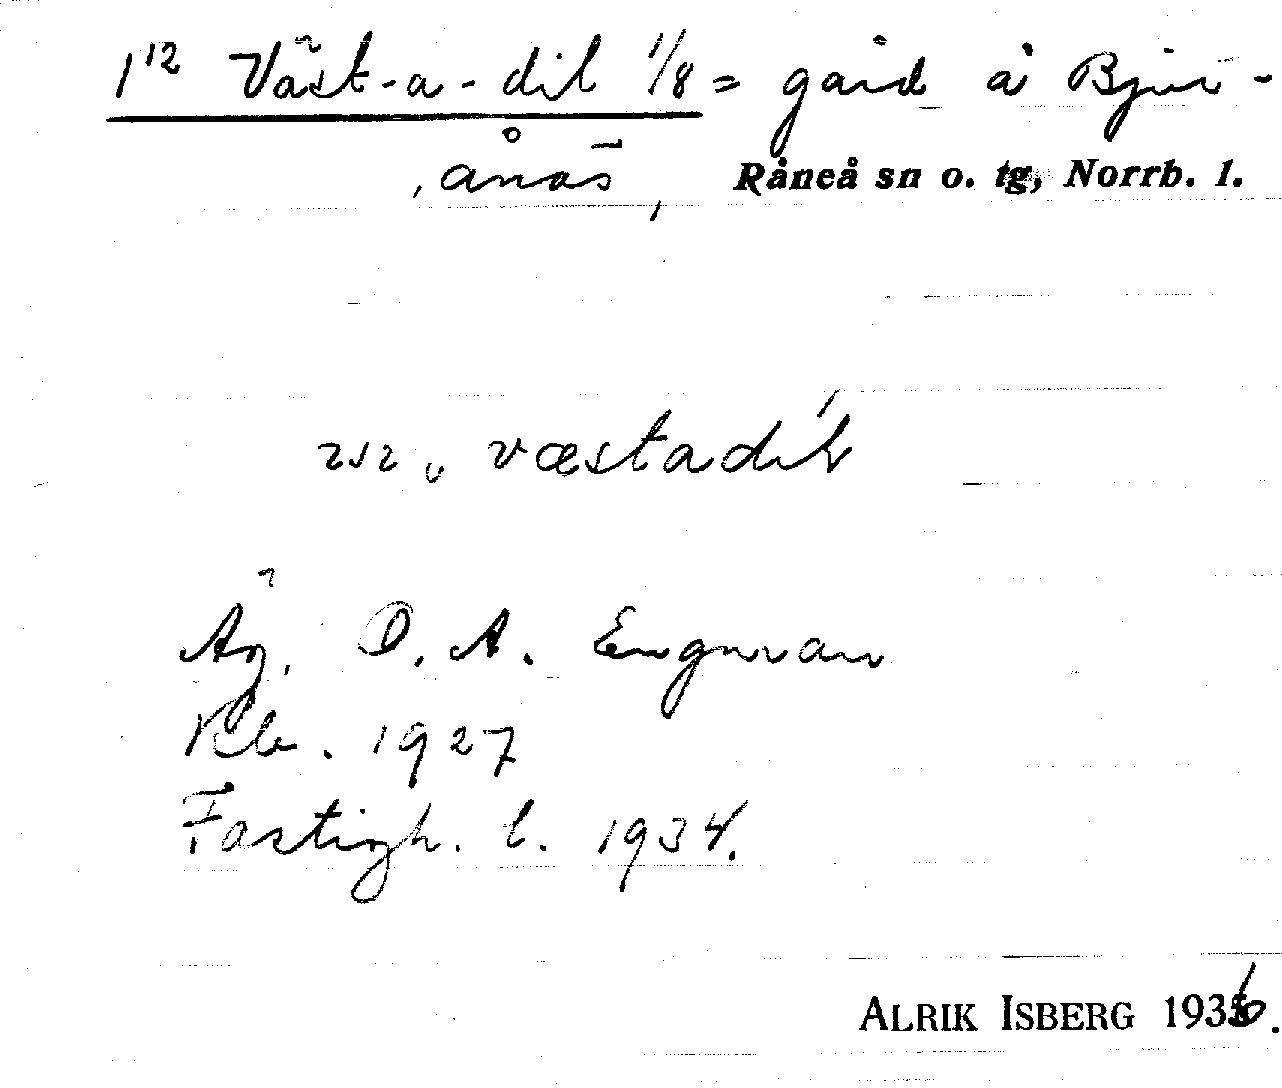 1¹² Väst-a-dil 1/8 = gård å Bjur-
ånäs, Råneå sn o. tg, Norrb. l.
væstadíl
Äg. O. A. Engman
Kb. 1927
Fastigh. l. 1934.
ALRIK ISBERG 1936.